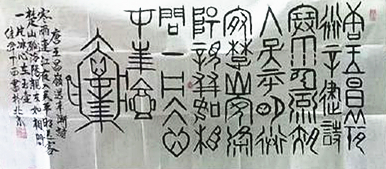 唐王昌齡
送辛漸詩
寒雨連江夜
入吳平明送
客楚山孤洛
陽親友如相
問一片冰心
在玉壺
唐王昌齡送辛漸詩
寒雨連江夜入吳平明送客
楚山孤洛陽親友如相問
一片冰心在玉壺
丁酉書於北京